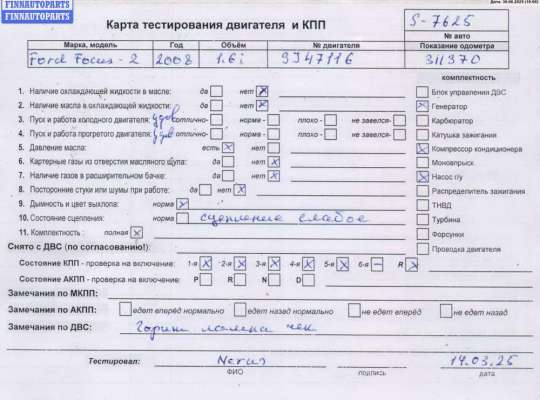 FINNAUTOPARTS
FINNAUTOPARTS
Карта тестирования двигателя и КПП
S-7625
№ авто
Марка, модель Год Объём № двигателя Показание одометра
Ford Focus-2 2008 1.6i 9J47116 311370
комплектность
1. Наличие охлаждающей жидкости в масле: да нет
2. Наличие масла в охлаждающей жидкости: да нет
3. Пуск и работа холодного двигателя: удов отлично- норма - плохо - не завелся-
4. Пуск и работа прогретого двигателя: удов отлично- норма - плохо - не завелся-
5. Давление масла: есть нет
6. Картерные газы из отверстия масляного щупа: да нет
7. Наличие газов в расширительном бачке: да нет
8. Посторонние стуки или шумы при работе: да нет
9. Дымность и цвет выхлопа: норма
10. Состояние сцепления: сцепление слабое
11. Комплектность : полная
Блок управления ДВС
Генератор
Карбюратор
Катушка зажигания
Компрессор кондиционера
Моновпрыск
Насос г\у
Распределитель зажигания
ТНВД
Турбина
Форсунки
Проводка двигателя
Снято с ДВС (по согласованию!):
Состояние КПП - проверка на включение: 1-я 2-я 3-я 4-я 5-я 6-я R
Состояние АКПП - проверка на включение: P R N D
Замечания по МКПП:
Замечания по АКПП: едет вперёд нормально едет назад нормально не едет вперёд не едет назад
Замечания по ДВС: Горит лампа чек
Тестировал: 14.03.25
ФИО подпись дата